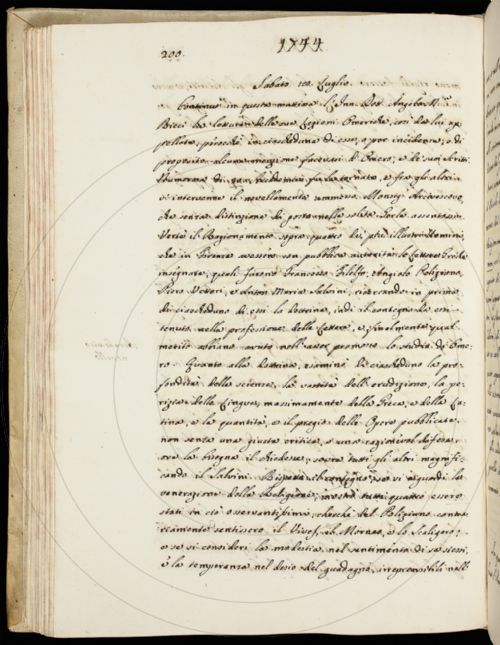 200.
1744
Sabato 18. Luglio.
Continuò in questa mattina l'Inn. Dot. Angelo M.ª
Ricci la lettura delle sue Lezioni Omeriche, così da lui ap
pellate, perocchè in ciascheduna di esse, o per incidenza, o di
proposito alcuna menzione facevasi di Omero, e de' suoi scritti.
Numerosa di gran
vi intervenne il novellamente Monsig. Arcivescovo,
che senza distinzione di posto nelle solite
Versò il Ragionamento sopra quattro dei più illustri Uomini,
che in Firenze avessero con pubblica autorità le Lettere Greche
insegnate, quali furono Francesco Filelfo, Angiolo Poliziano,
Piero Vettori, e Anton Maria Salvini, ricercando in prima
di ciascheduno di essi la Dottrina, indi il contegno da essi
tenuto nella professione delle Lettere, e finalmente qual
merito abbiano avuto nell'aver promosso lo studio di Ome
ro. Quanto alla dottrina, esaminò di ciascheduno la pro
fondità della scienza, la vastità dell'erudizione, la pe
rizia delle Lingue, massimamente della Greca, e della La
tina, e la quantità, e il pregio delle Opere pubblicate,
non senza una giusta critica, e una ragionevol difesa,
ove la bisogna il richiedesse, sopra tutti gli altri magnifi
cando il Salvini. Rispetto al contegno, se vi si guardi la
venerazione della Religione, mostrò tutti quattro essere
stati in ciò osservantissimi, checchè del Poliziano contra
riamente sentissero il Vives, il Morneo, e lo Scaligero;
o se si consideri la modestia nel sentimento di se stessi,
e la temperanza nel desio del guadagno, irreprensibili nell'